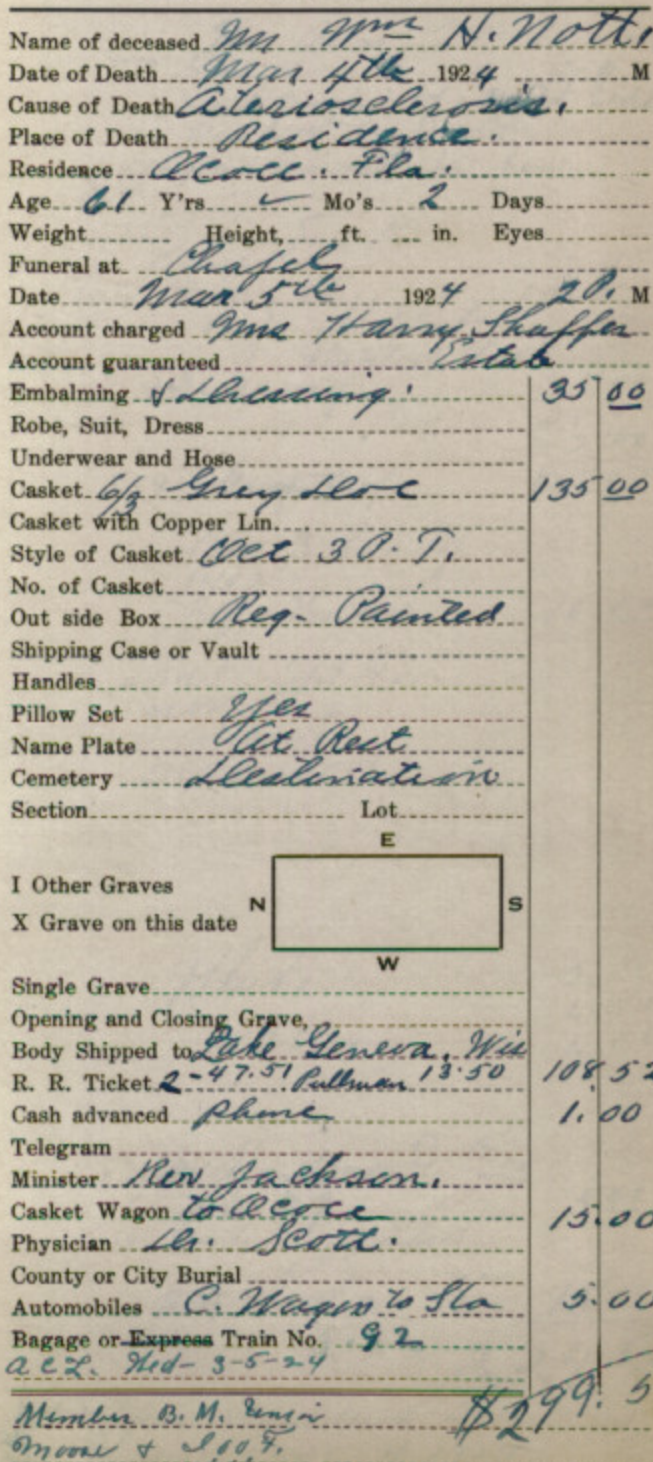 Name of deceased Mr Wm H. Nott.
Date of Death Mar 4th 1924 M
Cause of Death Ateriosclerosis.
Place of Death Residence.
Residence Ocoee. Fla.
Age 61 Y'rs ✓ Mo's 2 Days
Weight Height, ft. in. Eyes
Funeral at Chapel
Date Mar 5th 1924 2 P. M
Account charged Mrs Harry Shaffer
Account guaranteed Estate
Embalming & Dressing. 35 00
Robe, Suit, Dress
Underwear and Hose
Casket 6/3 Grey 135 00
Casket with Copper Lin.
Style of Casket Oct 3 P. T.
No. of Casket
Out side Box Reg- Painted
Shipping Case or Vault
Handles
Pillow Set Yes
Name Plate At Rest
Cemetery Destination
Section Lot
E
I Other Graves
N S
X Grave on this date
W
Single Grave
Opening and Closing Grave,
Body Shipped to Lake Geneva, Wis
R. R. Ticket 2-47.51 Pullman 13.50 108.52
Cash advanced Phone 1.00
Telegram
Minister Rev Jackson.
Casket Wagon to Ocoee 15.00
Physician Dr. Scott.
County or City Burial
Automobiles C. Wagon to Sta 5.00
Bagage or Express Train No. 92
A C L. Wed- 3-5-24
$299.5
Member B. M. Union
Moose & I O O F.